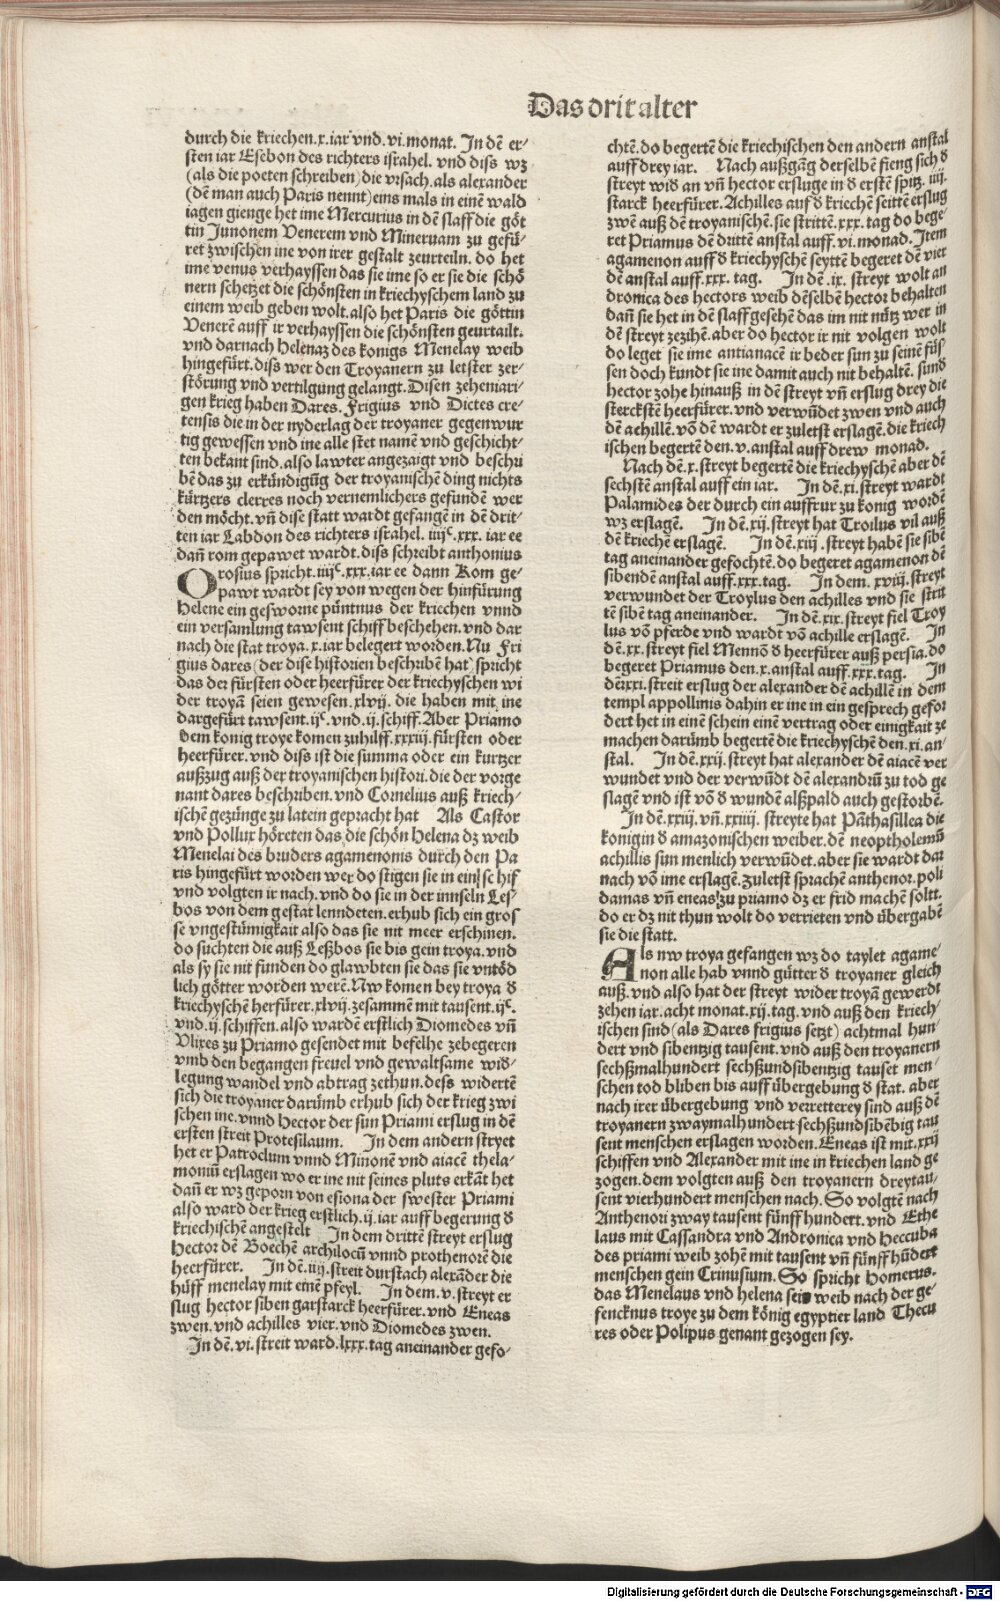 Das drit alter
durch die kriechen.x.iar vnd.vi.monat. In dẽ er-
sten iar Esebon des richters israhel. vnd diss wz
(als die poeten schreiben) die vrsach.als alexander
(dẽ man auch Paris nennt) eins mals in einẽ wald
iagen gienge het ime Mercurius in dẽ slaff die göt
tin Junonem Venerem vnd Mineruam zu gefü-
ret zwischen ine von irer gestalt zeurteiln. do het
ime venus verhayssen das sie ime so er sie die schö
nern schetzet die schönsten in kriechyschem land zu
einem weib geben wolt.also het Paris die göttin
Venerẽ auff ir verhayssen die schönsten geurtailt.
vnd darnach Helenaz des konigs Menelay weib
hingefürt.diss wer den Troyanern zu letster zer-
störung vnd vertilgung gelangt.Disen zeheniari-
gen krieg haben Dares. Frigius vnd Dictes cre-
tensis die in der nyderlag der troyaner gegenwur
tig gewessen vnd ine alle stet namẽ vnd geschicht-
ten bekant sind.also lawter angezaigt vnd beschri
bẽ das zu erkündigũg der troyanischẽ ding nichts
kürtzers clerres noch vernemlichers gefundẽ wer
den möcht.vñ dise statt wardt gefangẽ in dẽ drit-
ten iar Labdon des richters israhel. iiijᶜ.xxx. iar ee
dañ rom gepawet wardt.diss schreibt anthonius
Orosius spricht.iiijᶜ.xxx.iar ee dann Rom ge-
pawt wardt sey von wegen der hinfürung
Helene ein gesworne püntnus der kriechen vnnd
ein versamlung tawsent schiff beschehen.vnd dar
nach die stat troya.x.iar belegert worden.Nu Fri
gius dares (der dise historien beschribẽ hat) spricht
das der fürsten oder heerfürer der kriechyschen wi
der troyã seien gewesen.xlvij. die haben mit ine
dargefürt tawsent.ijᶜ.vnd.ij.schiff.Aber Priamo
dem konig troye komen zuhilff.xxxiij.fürsten oder
heerfürer.vnd diss ist die summa oder ein kurtzer
außzug auß der troyanischen histori.die der vorge
nant dares beschriben.vnd Cornelius auß kriech-
ischẽ gezünge zu latein gepracht hat   Als Castor
vnd Pollux höreten das die schön Helena dz weib
Menelai des bruders agamenonis durch den Pa
ris hingefürt worden wer do stigen sie in ein schif
vnd volgten ir nach.vnd do sie in der innseln Les-
bos von dem gestat lenndeten.erhub sich ein gros
se vngestümigkait also das sie nit meer erschinen.
do suchten die auß Leßbos sie bis gein troya.vnd
als sy sie nit funden do glawbten sie das sie vntöd
lich götter worden werẽ.Nw komen bey troya d̕
kriechyschẽ herfürer.xlvij.zesammẽ mit tausent.ijᶜ.
vnd.ij.schiffen.also wardẽ erstlich Diomedes vñ
Vlixes zu Priamo gesendet mit befelhe zebegeren
vmb den begangen freuel vnd gewaltsame wid̕-
legung wandel vnd abtrag zethun.dess widertẽ
sich die troyaner darũmb erhub sich der krieg zwi
schen ine.vnnd Hector der sun Priami erslug in dẽ
ersten streit Protesilaum.   In dem andern stryet
het er Patroclum vnnd Minonẽ vnd aiacẽ thela-
moniũ erslagen wo er ine nit seines pluts erkãt het
dañ er wz geporn von esiona der swester Priami
also ward der krieg erstlich.ij.iar auff begerung d̕
kriechischẽ angestelt   In dem drittẽ streyt erslug
Hector dẽ Boechẽ archilocũ vnnd prothenorẽ die
heerfürer.   In dẽ.iiij.streit durstach alexãder die
hüff menelay mit einẽ pfeyl.   In dem.v.streyt er
slug hector siben garstarck heerfürer.vnd Eneas
zwen.vnd achilles vier.vnd Diomedes zwen.
In dẽ.vi.streit ward.lxxx.tag aneinander gefo-
chtẽ.do begertẽ die kriechischen den andern anstal
auff drey iar.   Nach außgãg derselbẽ fieng sich d̕
streyt wid̕ an vñ hector ersluge in d̕ erstẽ spitz. iiij.
starck heerfürer.Achilles auf d̕ kriechẽ seittẽ erslug
zwẽ auß dẽ troyanischẽ.sie strittẽ.xxx.tag do bege-
ret Priamus dẽ drittẽ anstal auff.vi.monad.Item
agamenon auff d̕ kriechyschẽ seyttẽ begeret dẽ vier
dẽ anstal auff.xxx. tag.   In dẽ .ix. streyt wolt an
dronica des hectors weib dẽselbẽ hector behalten
dañ sie het in dẽ slaff gesehẽ das im nit nütz wer in
dẽ streyt zezihẽ.aber do hector ir nit volgen wolt
do leget sie ime antianacẽ ir beder sun zu seinẽ füs
sen doch kundt sie ine damit auch nit behaltẽ. sund̕
hector zohe hinauß in dẽ streyt vñ erslug drey die
sterckstẽ heerfürer.vnd verwũdet zwen vnd auch
dẽ achillẽ.võ dẽ wardt er zuletst erslagẽ.die kriech
ischen begertẽ den.v.anstal auff drew monad.
Nach dẽ.x.streyt begertẽ die kriechyschẽ aber dẽ
sechstẽ anstal auff ein iar.   In dẽ.xi.streyt wardt
Palamides der durch ein auffrur zu konig wordẽ
wz erslagẽ.   In dẽ.xij.streyt hat Troilus vil auß
dẽ kriechẽ erslagẽ.   In dẽ.xiij.streyt habẽ sie sibẽ
tag aneinander gefochtẽ.do begeret agamenon dẽ
sibendẽ anstal auff.xxx.tag.   In dem. xviij.streyt
verwundet der Troylus den achilles vnd sie strit
tẽ sibẽ tag aneinander.   In dẽ.xix.streyt fiel Troy
lus võ pferde vnd wardt võ achille erslagẽ.   In
dẽ.xx.streyt fiel Mennõ d̕ heerfürer auß persia.do
begeret Priamus den.x.anstal auff.xxx.tag.   In
dẽ.xxi.streit erslug der alexander dẽ achillẽ in dem
templ appollinis dahin er ine in ein gesprech gefor
dert het in einẽ schein einẽ vertrag oder einigkait ze
machen darũmb begertẽ die kriechyschẽ den.xi.an
stal.   In dẽ.xxij.streyt hat alexander dẽ aiacẽ ver
wundet vnd der verwũdt dẽ alexandrũ zu tod ge
slagẽ vnd ist võ d̕ wundẽ alßpald auch gestorbẽ.
In dẽ.xxiij.vñ.xxiiij. streyte hat Pãthasillea die
konigin d̕ amazonischen weiber.dẽ neoptholemũ
achillis sun menlich verwũdet.aber sie wardt dar
nach võ ime erslagẽ.zuletst sprachẽ anthenor.poli
damas vñ eneas zu priamo dz er frid machẽ soltt.
do er dz nit thun wolt do verrieten vnd übergabẽ
sie die statt.
Als nw troya gefangen wz do taylet agame-
non alle hab vnnd gütter d̕ troyaner gleich
auß.vnd also hat der streyt wider troyã gewerdt
zehen iar.acht monat.xij.tag.vnd auß den kriech-
ischen sind (als Dares frigius setzt) achtmal hun-
dert vnd sibentzig tausent.vnd auß den troyanern
sechßmalhundert sechßundsibentzig tauset men-
schen tod bliben bis auff übergebung d̕ stat. aber
nach irer übergebung vnd verretterey sind auß dẽ
troyanern zwaymalhundert sechßundsibẽbig tau
sent menschen erslagen worden.Eneas ist mit.xxij
schiffen vnd Alexander mit ine in kriechen land ge
zogen.dem volgten auß den troyanern dreytau-
sent vierhundert menschen nach.So volgtẽ nach
Anthenori zway tausent fünff hundert.vnd Ethe
laus mit Cassandra vnd Andronica vnd Heccuba
des priami weib zohẽ mit tausent vñ fünff hũdert
menschen gein Crinusium.So spricht Homerus.
das Menelaus vnd helena sein weib nach der ge-
fencknus troye zu dem könig egyptier land Thecu
res oder Polipus genant gezogen sey.
Digitalisierung gefördert durch die Deutsche Forschungsgemeinschaft - DFG